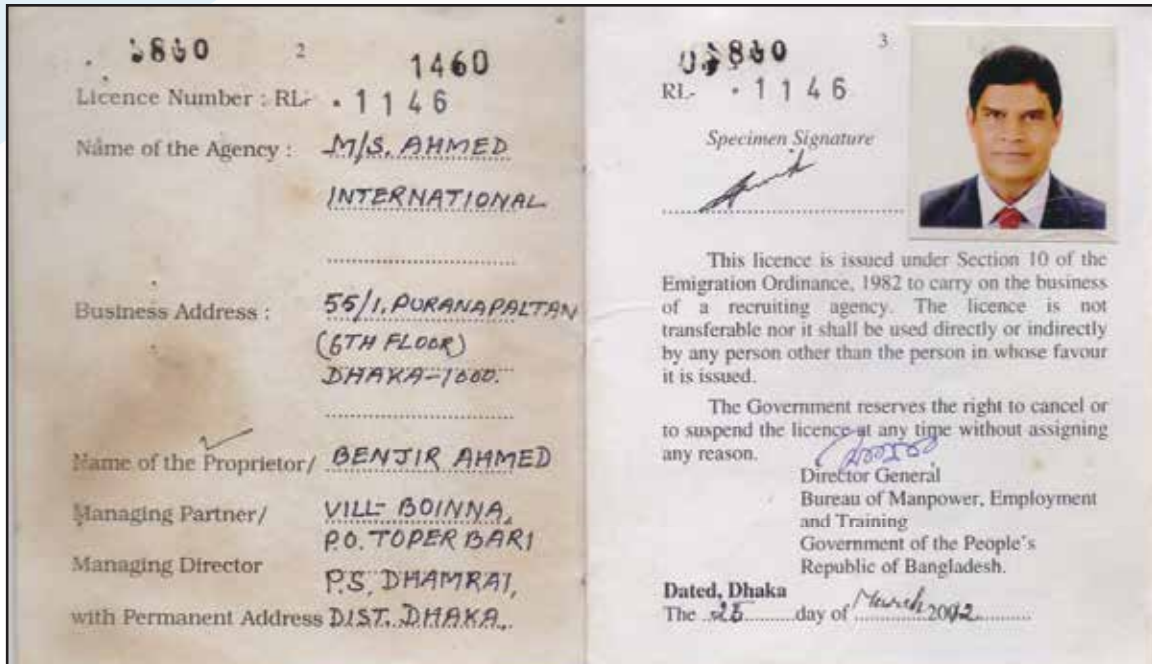 2
1460
Licence Number : RL- 1146
Name of the Agency : M/S. AHMED
INTERNATIONAL
Business Address : 55/1, PURANAPALTAN
(6TH FLOOR)
DHAKA-1000.
Name of the Proprietor/ BENJIR AHMED
Managing Partner/ VILL- BOINNA,
P.O. TOPER BARI
Managing Director
P.S. DHAMRAI,
with Permanent Address DIST. DHAKA.
3
RL- 1146
Specimen Signature
This licence is issued under Section 10 of the
Emigration Ordinance, 1982 to carry on the business
of a recruiting agency. The licence is not
transferable nor it shall be used directly or indirectly
by any person other than the person in whose favour
it is issued.
The Government reserves the right to cancel or
to suspend the licence at any time without assigning
any reason.
Director General
Bureau of Manpower, Employment
and Training
Government of the People's
Republic of Bangladesh.
Dated, Dhaka
The 25 day of March